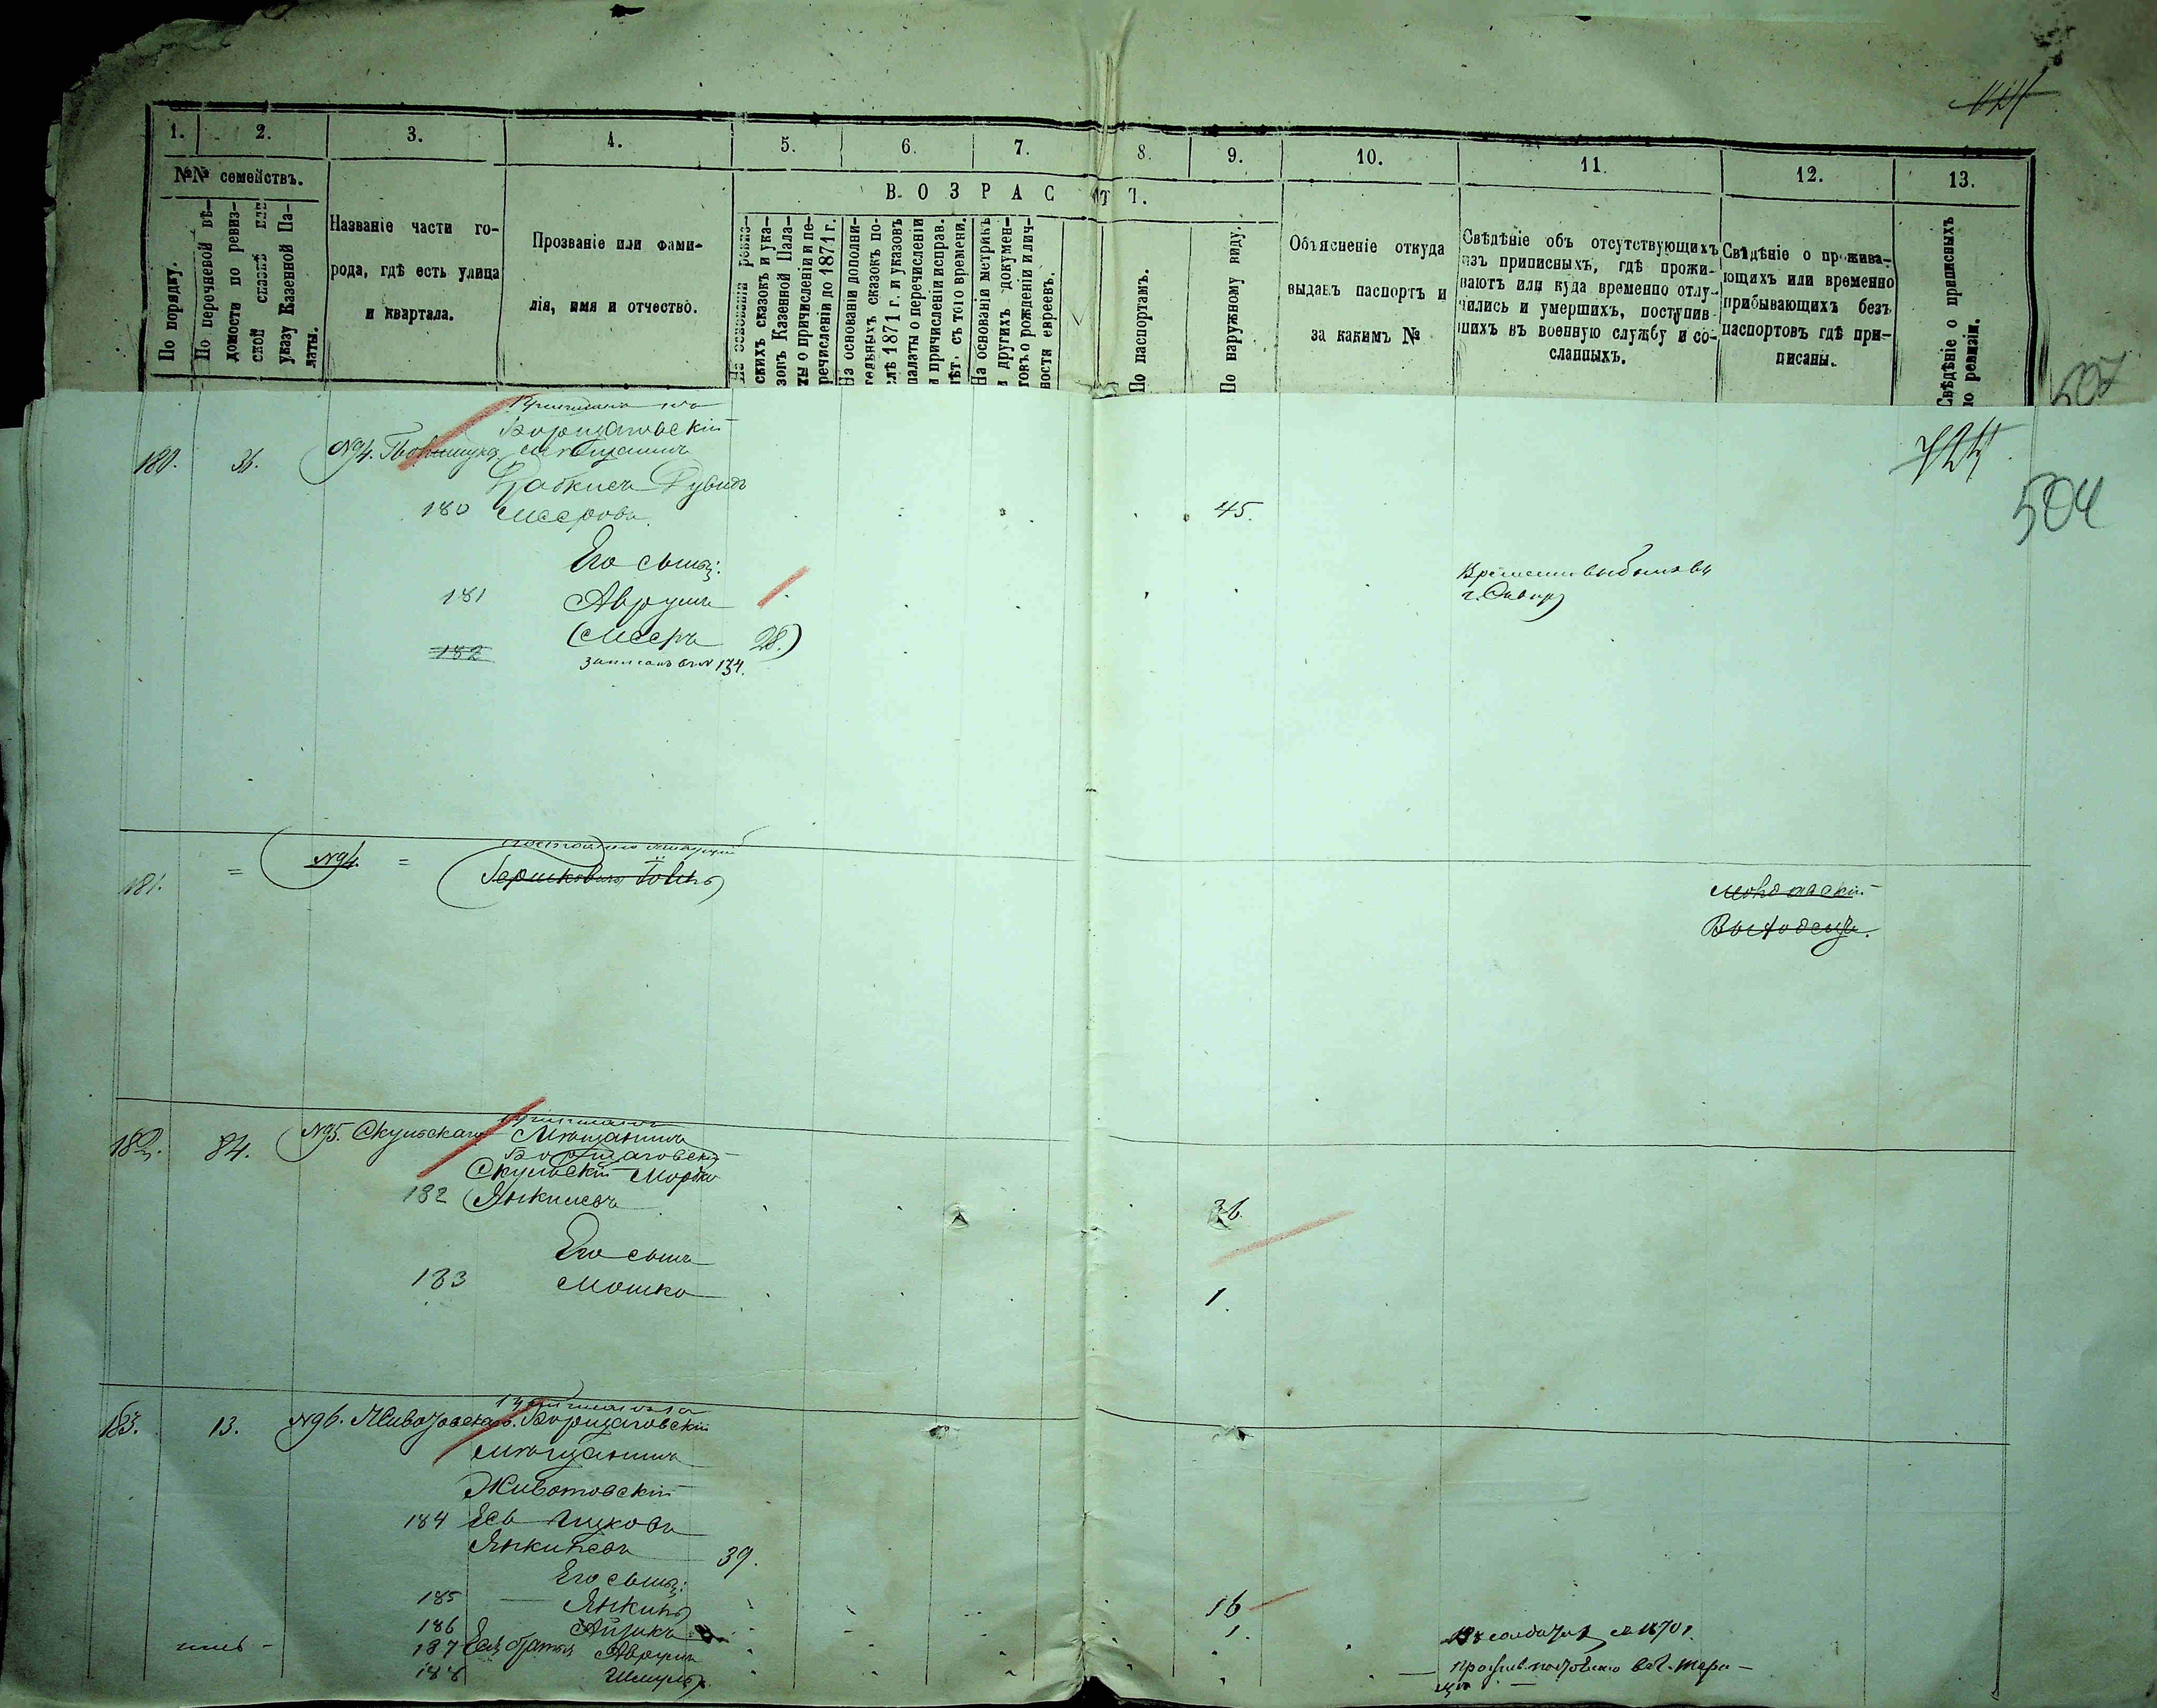 1. 2. 3. 4. 5. 6. 7. 8. 9. 10. 11. 12. 13.
№№ семействъ.
ВОЗРАСТ Т.
По порядку.
По перечневой вѣ-
домости по ревиз-
ской сказкѣ или
указу Казенной Па-
латы.
Названіе части го-
рода, гдѣ есть улица
и квартала.
Прозваніе или фами-
лія, имя и отчество.
На основаніи ревиз-
скихъ сказокъ и ука-
зовъ Казенной Пала-
ты о причисленіи и пе-
речисленіи до 1871 г.
На основаніи дополни-
тельныхъ сказокъ по-
слѣ 1871 г. и указовъ
палаты о перечисленіи
и причисленіи исправ.
лѣт. съ того времени.
На основаніи метрикъ
и другихъ докумен-
товъ о рожденіи и лич-
ности евреевъ.
По паспортамъ.
По наружному виду.
Объясненіе откуда
выданъ паспортъ и
за какимъ №
Свѣдѣніе объ отсутствующихъ
изъ приписныхъ, гдѣ прожи-
ваютъ или куда временно отлу-
чились и умершихъ, поступив-
шихъ въ военную службу и со-
сланныхъ.
Свѣдѣніе о прожива-
ющихъ или временно
прибывающихъ безъ
паспортовъ гдѣ при-
писаны.
Свѣдѣніе о приписныхъ
по ревизіи.
507
504
Борщаговскій
180. 36. №94. мѣщанинъ
Дувидъ
180 Мееровъ 45.
Его сыны:
181 Аврумъ
(Мееръ 28.)
182 записанъ въ № 134.
Временно выбылъ въ
г. Сквиру
181. = №94. =
Гершковичъ
Выходецъ.
182. 84. №95. Скульскаго Мѣщанинъ
Борщаговскій
Скульскій Мордко
182 Янкилевъ 36.
Его сынъ
183 Мошко 1.
183. 13. №96. Животовскаго. Борщаговскій
мѣщанинъ
Животовскій
184 Ицковъ
Янкилевъ 39.
Его сыны:
185 Янкиль 16
186 Айзикъ 1.
187 Его братья Аврумъ
188 Шмуль